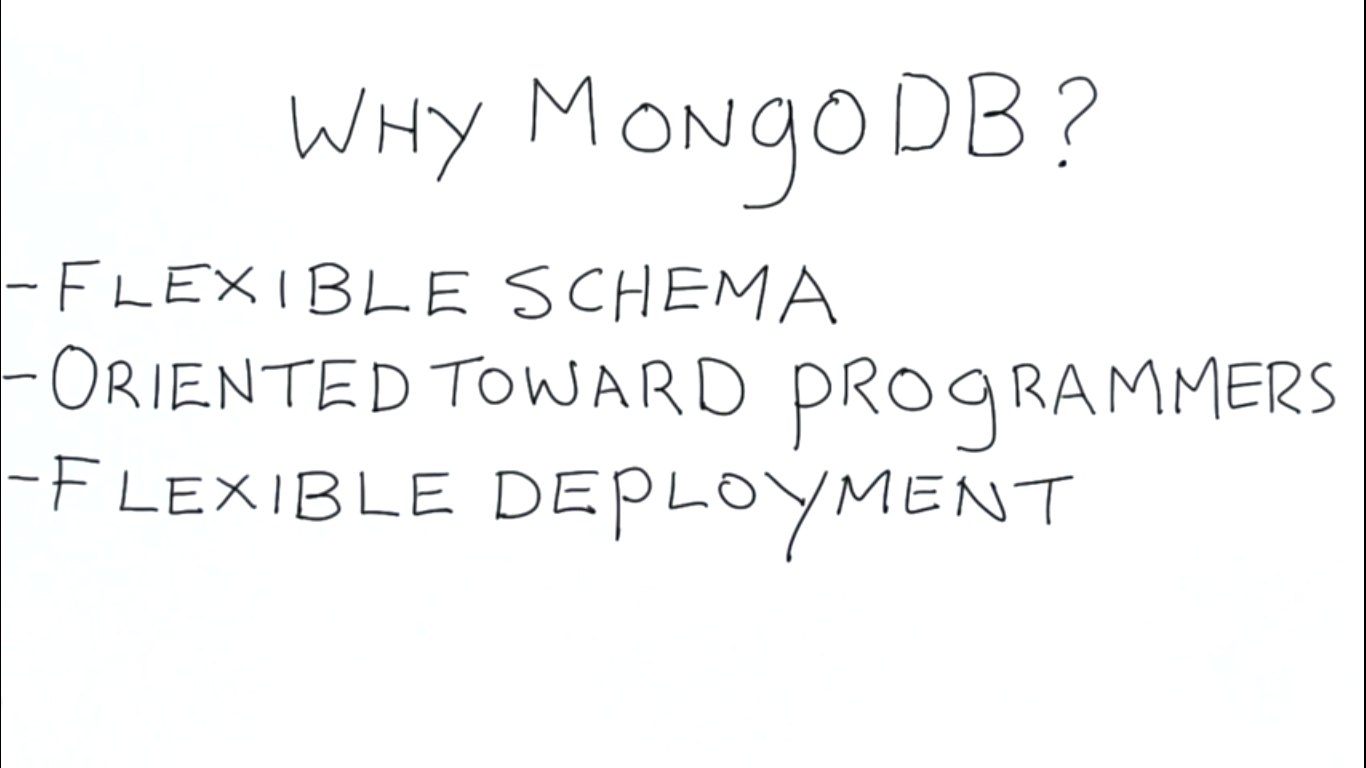 WHY MONgODB?
- FLEXIBLE SCHEMA
- ORIENTED TOWARD PROgRAMMERS
- FLEXIBLE DEPLOYMENT